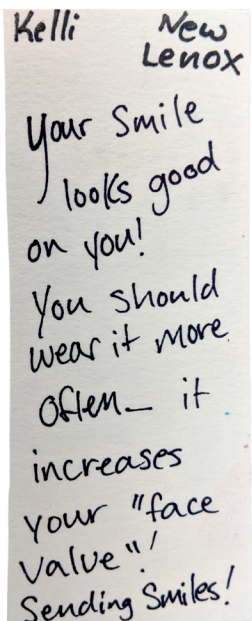 Kelli New
Lenox
Your Smile
looks good
on you!
You should
wear it more
often_ it
increases
your "face
value"!
Sending Smiles!